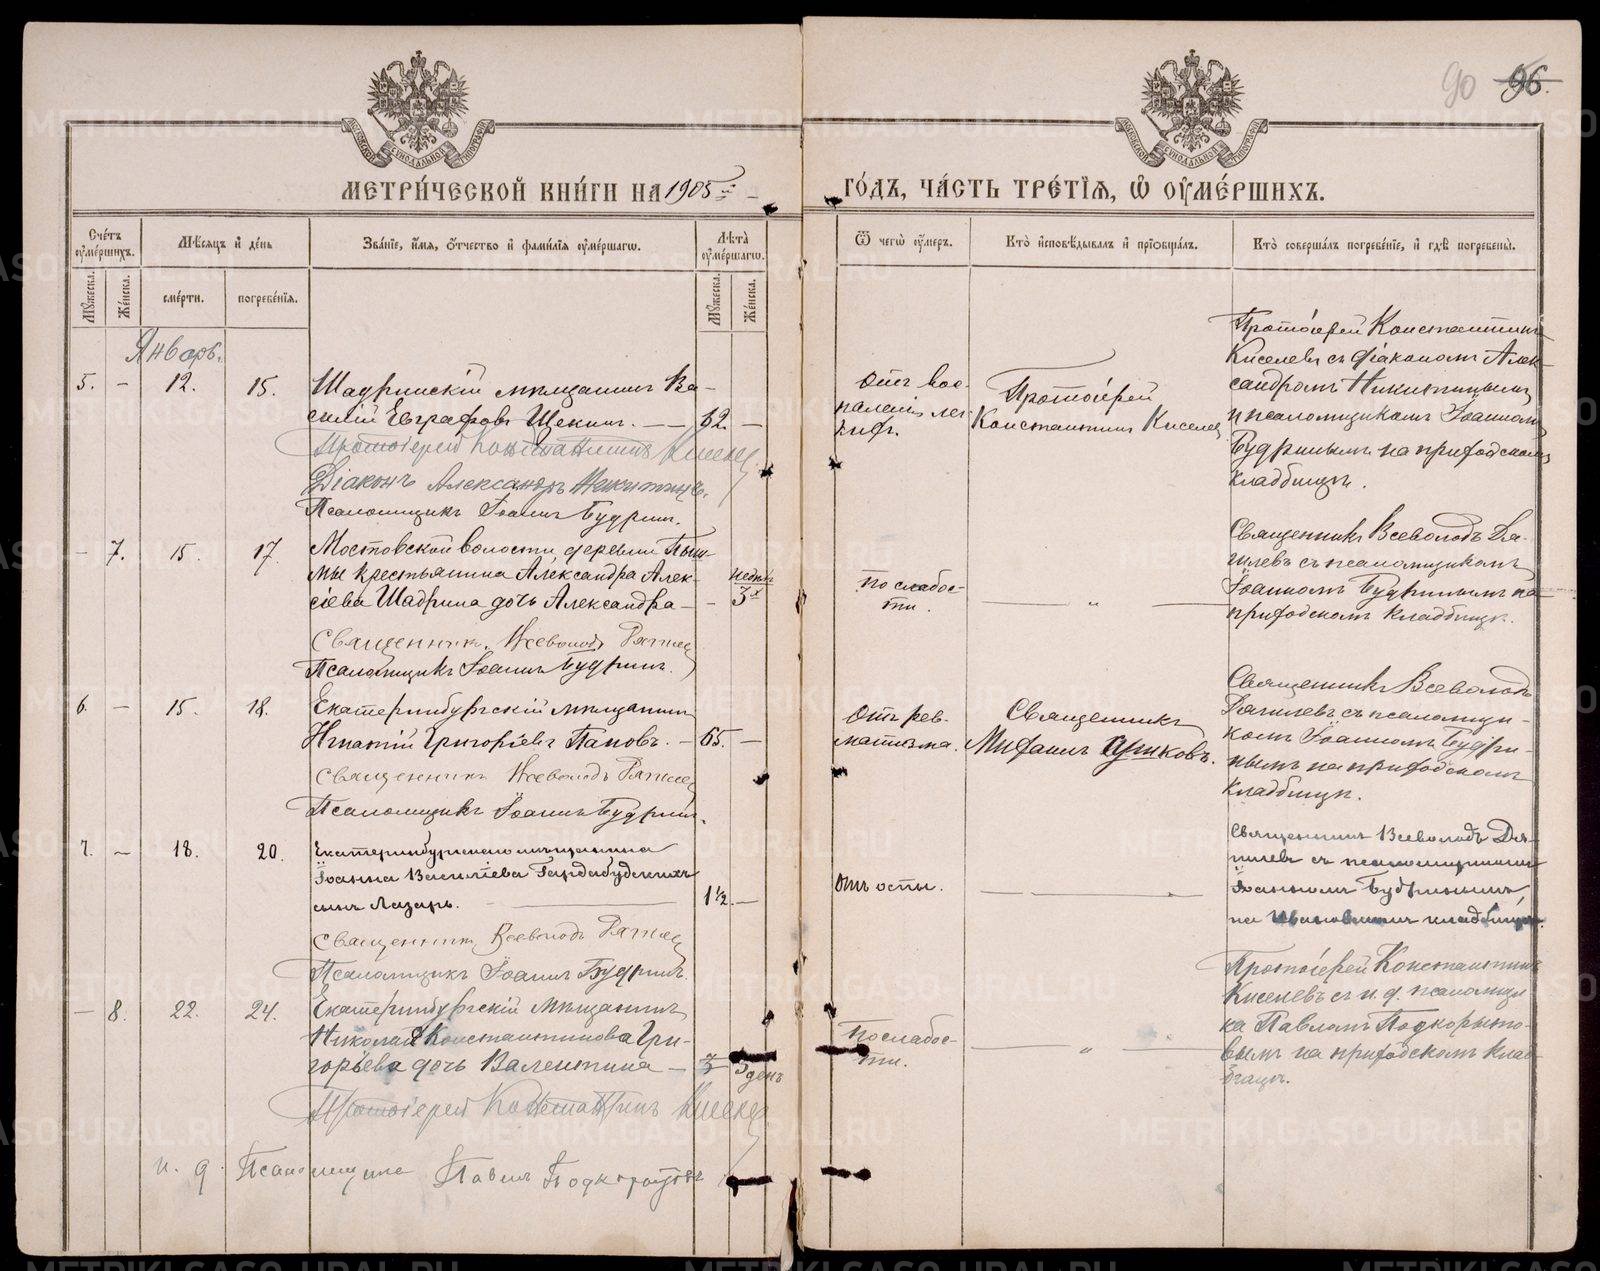 90 96.
МЕТРИ́ЧЕСКОЙ КНИ́ГИ НА 1905й
ГО́ДЪ, ЧА́СТЬ ТРЕ́ТІѦ, Ѡ҆ ОУ҆МЕ́РШИХЪ.
Сче́тъ оу҆ме́ршихъ.
Мѣ́сяцъ и҆ де́нь
Зва́ніе, и҆́мя, ѻ҆́тчество и҆ фами́лія оу҆ме́ршагѡ.
Лѣ́та оу҆ме́ршагѡ.
Ѿ чегѡ̀ оу҆́меръ.
Кто̀ и҆сповѣ́дывалъ и҆ пріѡбща́лъ.
Кто̀ соверша́лъ погребе́ніе, и҆ гдѣ̀ погребены̀.
Мꙋ́жеска.
Же́нска.
сме́рти.
погребе́нія.
Мꙋ́жеска.
Же́нска.
Январь.
5. - 12. 15.
Шадринскій мѣщанинъ Ва-
силій Евграфовъ Щекинъ. — 62. -
Протоіерей Константинъ Киселевъ
Діаконъ Александръ Никитинъ.
Псаломщикъ Іоаннъ Будринъ.
Отъ вос-
паленія лег-
кихъ.
Протоіерей
Константинъ Киселевъ
Протоіерей Константинъ
Киселевъ съ діакономъ Алек-
сандромъ Никитинымъ
и псаломщикомъ Іоанномъ
Будринымъ на приходскомъ
кладбищѣ.
- 7. 15. 17.
Мостовской волости, деревни Пыш-
мы крестьянина Александра Алек-
сіева Шадрина дочь Александра -
недѣль
3х
Священникъ Всеволодъ
Псаломщикъ Іоаннъ Будринъ.
По слабос-
ти.
— „ —
Священникъ Всеволодъ
съ псаломщикомъ
Іоанномъ Будринымъ на
приходскомъ кладбищѣ.
6. - 15. 18.
Екатеринбургскій мѣщанинъ
Игнатій Григоріевъ Поповъ. - 65. -
Священникъ Всеволодъ
Псаломщикъ Іоаннъ Будринъ.
Отъ рев-
матизма.
Священникъ
Священникъ Всеволодъ
съ псаломщи-
комъ Іоанномъ Будри-
нымъ на приходскомъ
кладбищѣ.
7. - 18. 20.
Екатеринбургскаго мѣщанина
Іоанна Василіева
сынъ Лазарь. — 1½. -
Священникъ Всеволодъ
Псаломщикъ Іоаннъ Будринъ.
Отъ оспы.
Священникъ Всеволодъ
съ псаломщикомъ
Іоанномъ Будринымъ
на Ивановскомъ кладбищѣ.
- 8. 22. 24.
Екатеринбургскій мѣщанинъ
Николай Константинова Гри-
горьева дочь Валентина -
3
день
Протоіерей Константинъ Киселевъ
и. д. Псаломщика Павелъ
По слабос-
ти.
— „ —
Протоіерей Константинъ
Киселевъ съ и. д. псаломщи-
ка Павломъ Подкорыто-
вымъ на приходскомъ клад-
бищѣ.
METRIKI.GASO-URAL.RU